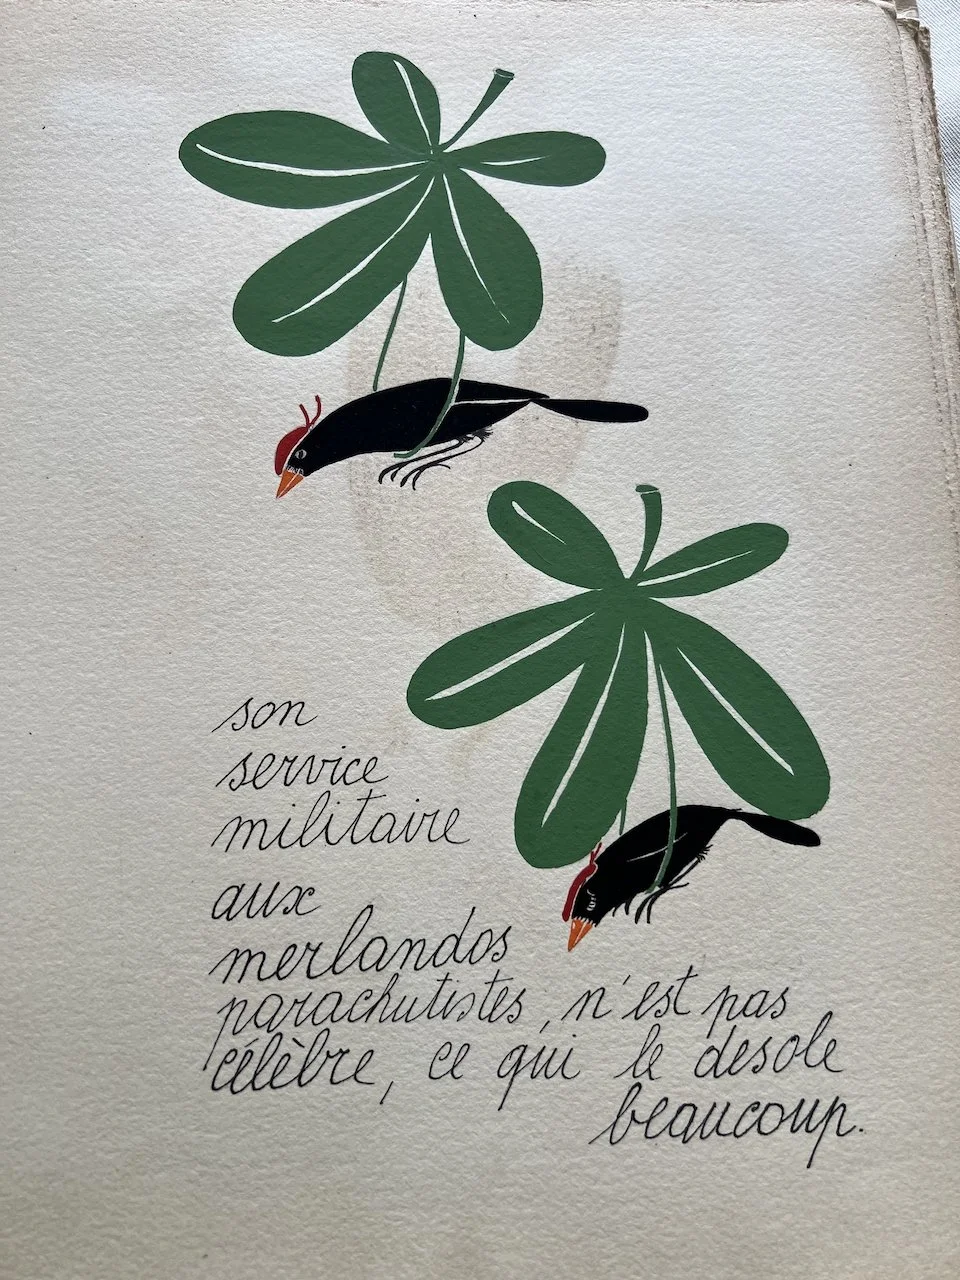 son
service
militaire
aux
merlandos
parachutistes, n'est pas
célèbre, ce qui le desole
beaucoup.